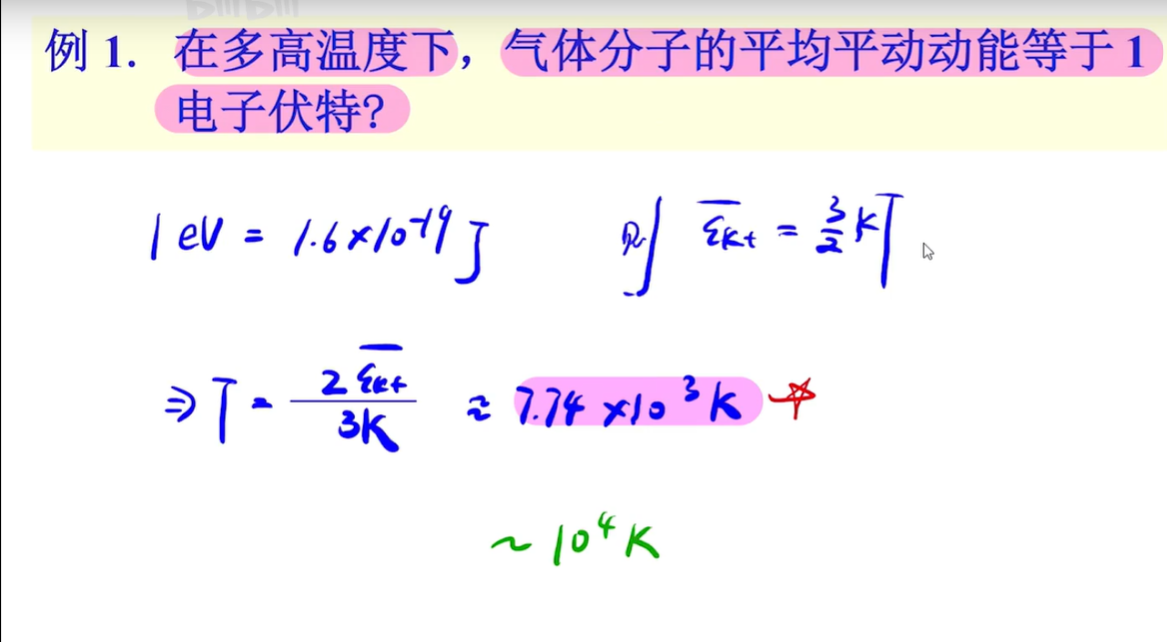 例 1. 在多高温度下，气体分子的平均平动动能等于 1
电子伏特?
1 eV = 1.6×10⁻¹⁹ J 则 ε̅kt = 3/2 KT
⇒ T = 2 ε̅kt / 3K ≈ 7.74 ×10³ K
~ 10⁴ K